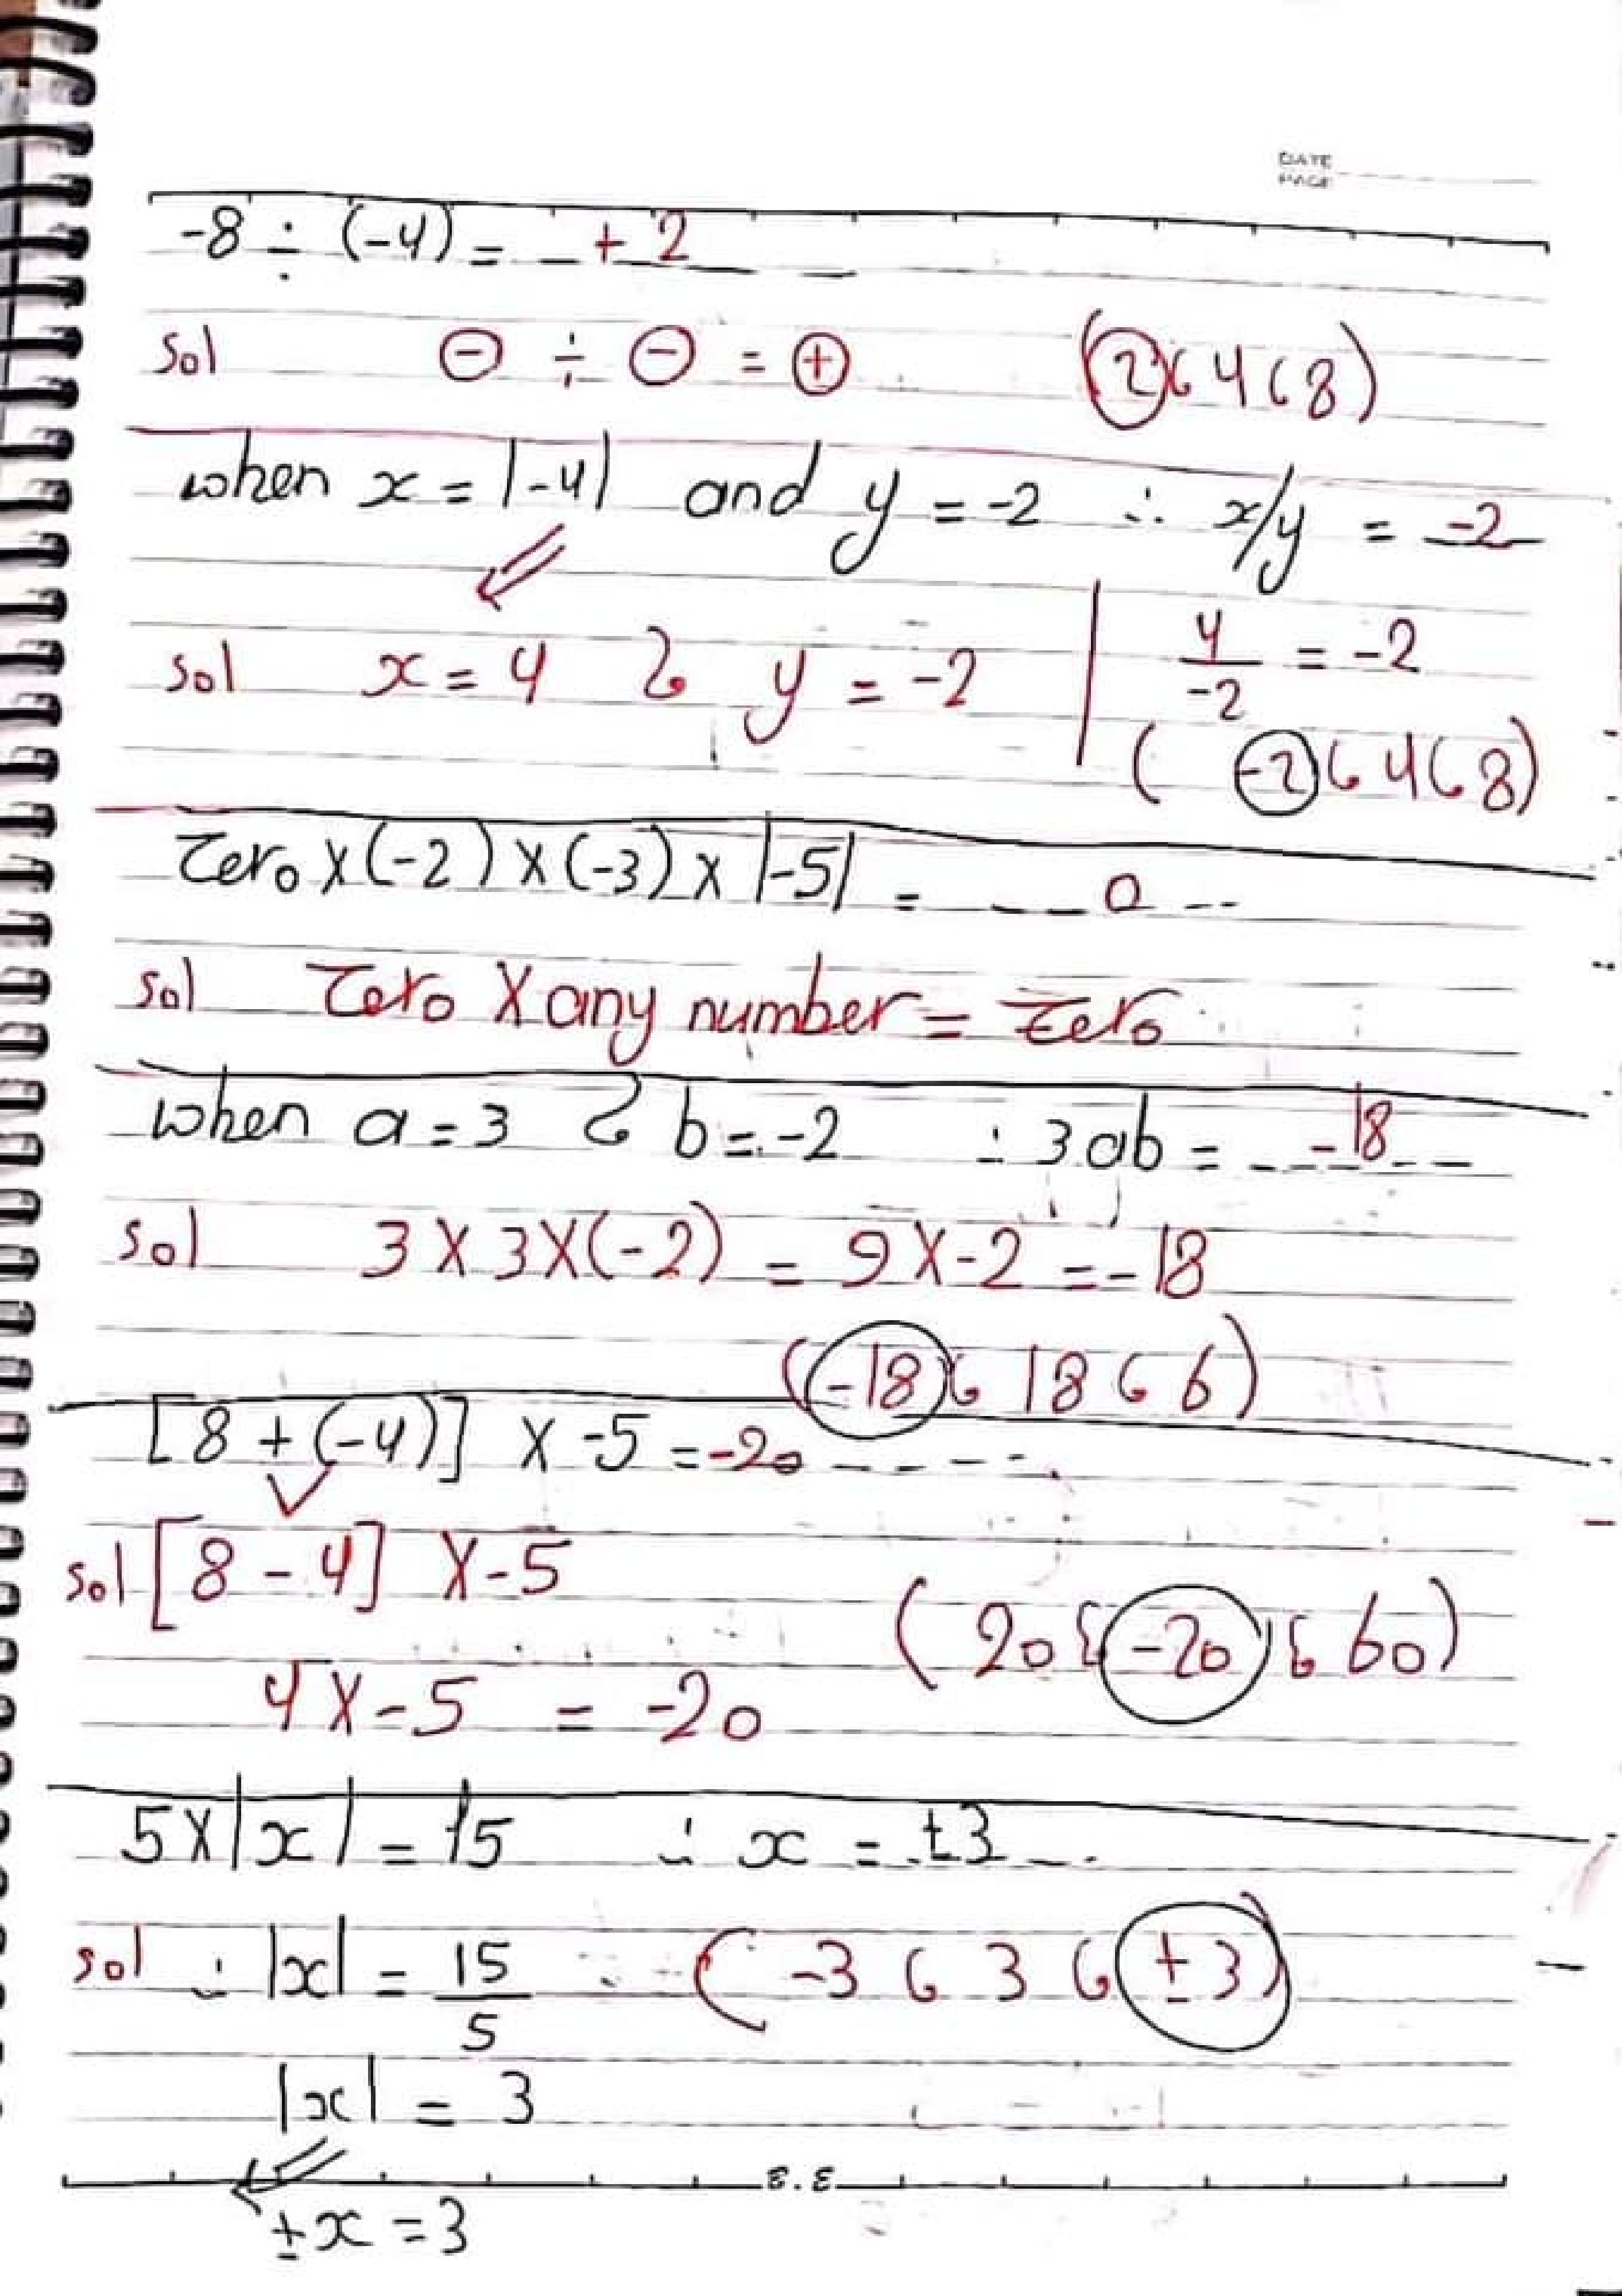 DATE
PAGE
-8 ÷ (-4) = + 2
Sol ⊖ ÷ ⊖ = ⊕ (2 ، 4 ، 8)
when x = |-4| and y = -2 ∴ x/y = -2
Sol x = 4 و y = -2 | 4/-2 = -2
(-2 ، 4 ، 8)
Zero X (-2) X (-3) X |-5| = 0
Sol Zero X any number = Zero
when a = 3 و b = -2 ∴ 3ab = -18
Sol 3 X 3 X (-2) = 9 X -2 = -18
(-18 ، 18 ، 6)
[8 + (-4)] X -5 = -20
Sol [8 - 4] X -5
(20 ، -20 ، 60)
4 X -5 = -20
5 X |x| = 15 ∴ x = ±3
Sol ∴ |x| = 15/5 (-3 ، 3 ، ±3)
|x| = 3
±x = 3